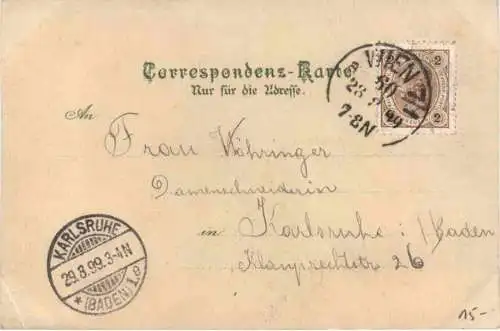 Correspondenz-Karte.
Nur für die Adresse.
WIEN
60
2
2
2
7-8N
An
Frau Wöhringer
Damenschneiderin
in Karlsruhe i/Baden
Klauprechtstr 26
KARLSRUHE
29.8.99.3-4N
* (BADEN) 1.e
15-